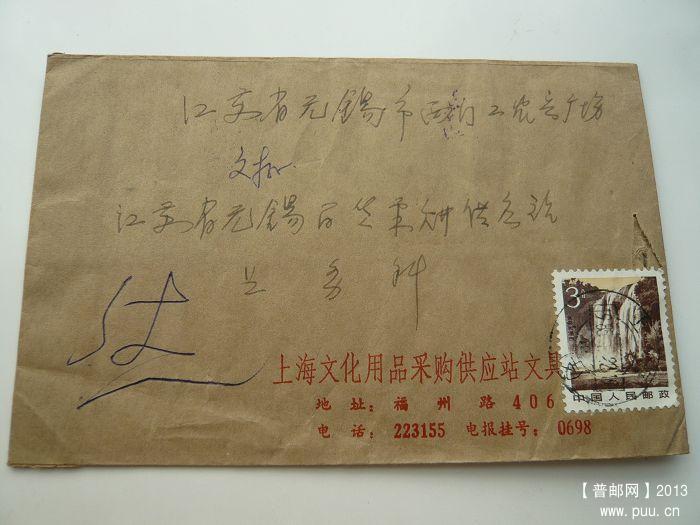 江苏省无锡市西门工农兵广场
文批
江苏省无锡百货采购供应站
业务科
上海文化用品采购供应站文具
地 址: 福 州 路 406
电 话: 223155 电报挂号: 0698
3分
中国人民邮政
【普邮网】2013
www.puu.cn